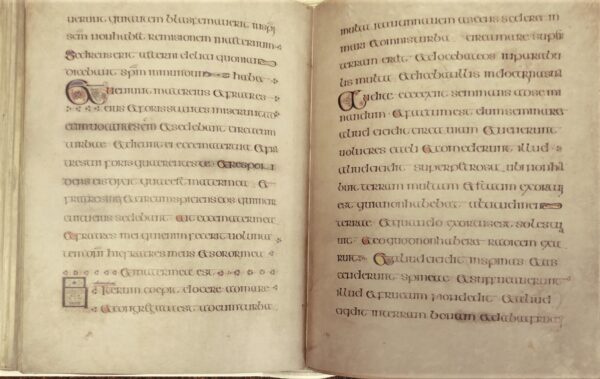 uerint qui autem blaspemauerit in spm
scm non habit remisionem in aeternum
sed reus erit aeterni delicti quoniam
dicebant spm inmundum habet
Et ueniunt mater eius et fratres
eius et foris stantes miserunt ad
eum uocantes eum et sedebat circa eum
turba et dicunt ei ecce mater tua et fra
tres tui foris quaerent te et respon
dens eis dixit quae est mater mea et
fratres mei et circumspiciens eos qui in cir
cuitu eius sedebant ait ecce mater mea
et fratres mei qui enim fecerit uolunta
tem di hic fratres meus et soror mea
et mater mea est
Iterum coepit docere ad mare
et congregata est ad eum turba
multa ita ut in nauem ascens sederet in
mari et omnis turba circa mare super
terram erat et docebat eos in parabu
lis multa et dicebat illis in doctrina sua
Audite ecce exiit seminans ad semi
nandum et factum est dum seminaret
aliud cicidit circa uiam et uenerunt
uolucres caeli et comederunt illud
aliud cicidit super petrosa ubi non ha
buit terram multam et statim exorta
est quia non habebat altitudinem
terrae et quando exortus est sol exestua
uit et eo quod non haberet radicem exa
ruit et aliud cicidit in spinas et as
cenderunt spinae et suffucauerunt
illud et fructum non dedit et aliud
cicidit in terram bonam et dabat fruc